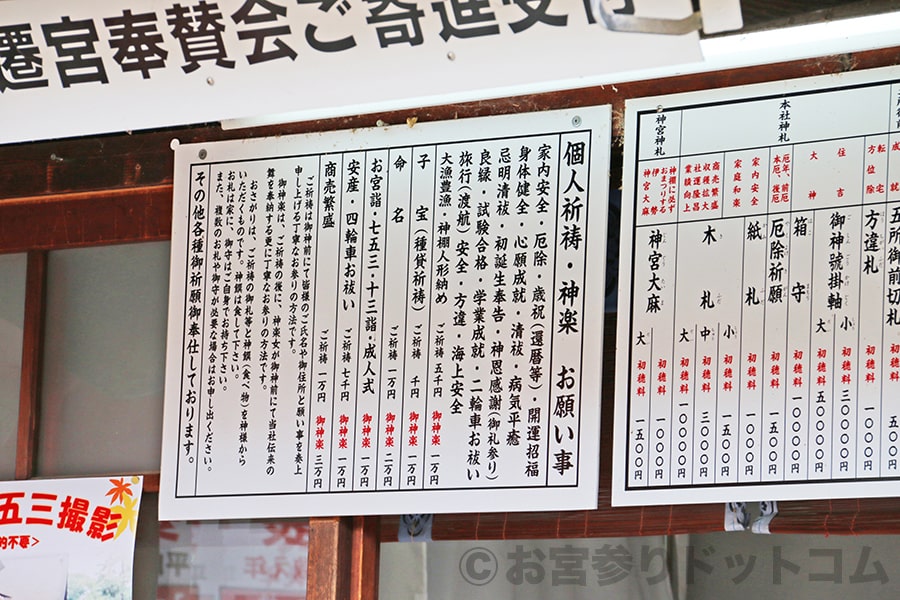 遷宮奉賛会ご寄進受付
個人祈祷・神楽 お願い事
家内安全・厄除・歳祝(還暦等)・開運招福
身体健全・心願成就・清祓・病気平癒
忌明清祓・初誕生奉告・神恩感謝(御礼参り)
良縁・試験合格・学業成就・二輪車お祓い
旅行(渡航)安全・方違・海上安全
大漁豊漁・神棚人形納め
ご祈祷 五千円 御神楽 一万円
子宝(種貸祈祷) ご祈祷 千円 御神楽 一万円
命名 ご祈祷 一万円 御神楽 二万円
お宮詣・七五三・十三詣・成人式
ご祈祷 一万円 御神楽 一万円
安産・四輪車お祓い ご祈祷 七千円 御神楽 一万円
商売繁盛 ご祈祷 一万円 御神楽 三万円
ご祈祷は御神前にて皆様のご氏名や御住所と願い事を奏上
申し上げる丁寧なお参りの方法です。
御神楽は、ご祈祷の後に、神楽女が御神前にて当社伝来の
舞を奉納する更に丁寧なお参りの方法です。
おさがりは、ご祈祷の御札等と神饌(食べ物)を神様から
いただくものです。神饌は食して下さい。
お札は家に、御守はご自身でお持ち下さい。
また、複数のお札や御守が必要な場合はお申し出ください。
その他各種御祈願御奉仕しております。
成就
五所御前切札 初穂料 五〇〇円
転宅 方位除
方違札 初穂料 一〇〇〇円
本社神札
住吉
大神
御神號掛軸 小 初穂料 三〇〇〇円
大 初穂料 五〇〇〇円
箱守 初穂料 一〇〇〇円
厄年、前厄 本厄、後厄
厄除祈願 初穂料 一五〇〇円
家内安全 家庭和楽
紙札 初穂料 一〇〇円
商売繁盛 収穫拡大 社運隆昌 業績向上
木札 小 初穂料 一〇〇〇円
中 初穂料 三〇〇〇円
大 初穂料
神宮神札
神棚に必ず おまつりする 伊勢 神宮大麻
神宮大麻 大 初穂料
五三撮影
的不要>
©お宮参りドットコム